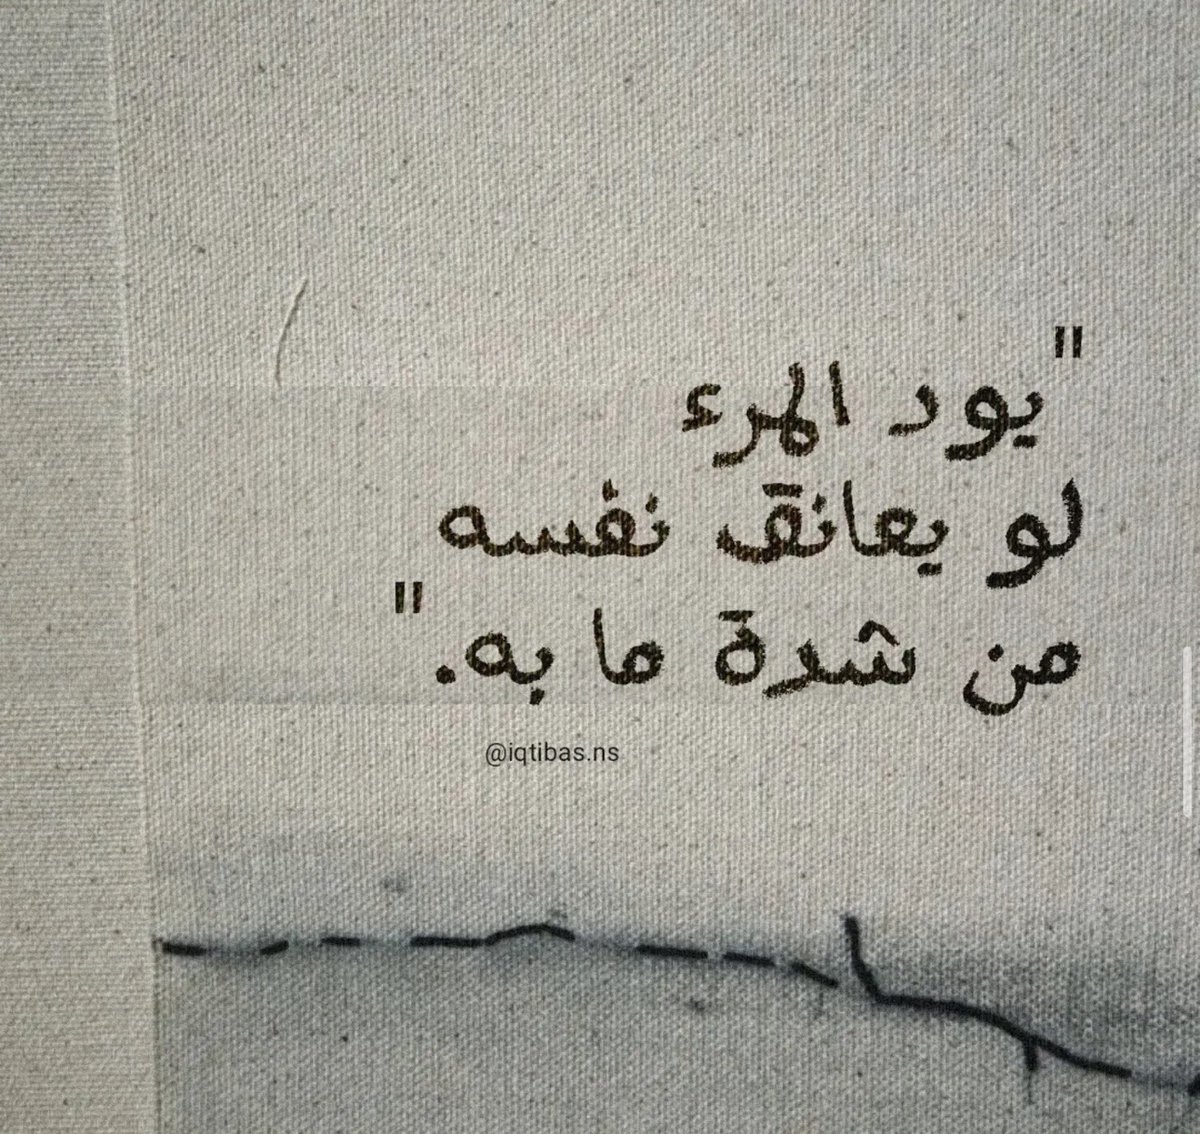 "يود المرء
لو يعانق نفسه
من شدة ما به."
@iqtibas.ns